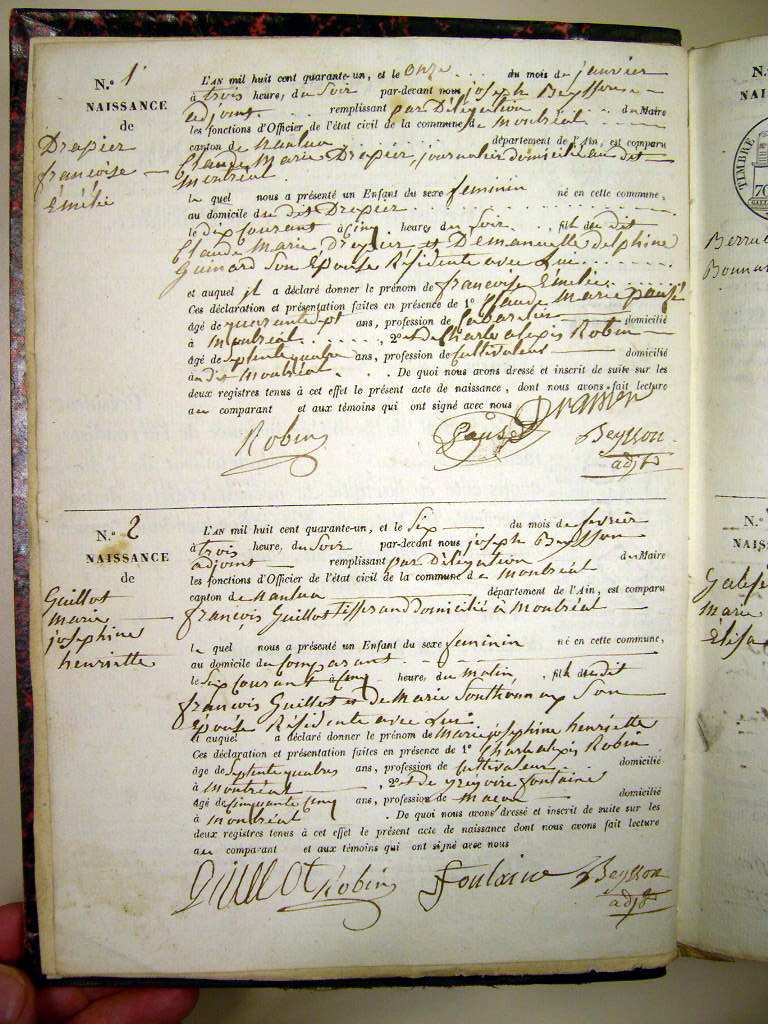 N.º 1
NAISSANCE
de
Drapier
françoise
Émélie
L'AN mil huit cent quarante-un, et le Onze du mois de janvier
à trois heure, du Soir par-devant nous joseph Beysson
adjoint remplissant par Délégation du Maire
les fonctions d'Officier de l'état civil de la commune de Montréal
canton de Nantua département de l'Ain, est comparu
Claude Marie Drapier, journalier domicilié au dit
Montréal
le quel nous a présenté un Enfant du sexe feminin né en cette commune,
au domicile du dit Drapier
le dix courant à cinq heure du Soir, fils du dit
Claude Marie Drapier et Demanuelle delphine
Guinard Son Epouse Résidente avec Lui
et auquel il a déclaré donner le prénom de françoise Émélie
Ces déclaration et présentation faites en présence de 1º Claude Marie pausé
âgé de quarante sept ans, profession de Cabaretier domicilié
à Montréal, 2º et de Charle alexis Robin
âgé de septente quatre ans, profession de Cultivateur domicilié
au dit Montréal. De quoi nous avons dressé et inscrit de suite sur les
deux registres tenus à cet effet le présent acte de naissance, dont nous avons fait lecture
au comparant et aux témoins qui ont signé avec nous
Robin Beysson
adjt
N.º 2
NAISSANCE
de
Guillot
marie
josephine
henriette
L'AN mil huit cent quarante-un, et le Six du mois de fevrier
à trois heure, du Soir par-devant nous joseph Beysson
adjoint remplissant par Délégation du Maire
les fonctions d'Officier de l'état civil de la commune de Montréal
canton de Nantua département de l'Ain, est comparu
françois Guillot tisserand Domicilié à Montréal
le quel nous a présenté un Enfant du sexe feminin né en cette commune,
au domicile du Comparant
le Six courant à cinq heure du matin, fils dudit
françois Guillot et de Marie Son
épouse Résidente avec Lui
et auquel a déclaré donner le prénom de Marie josephine henriette
Ces déclaration et présentation faites en présence de 1º Charle alexis Robin
âgé de septente quatres ans, profession de Cultivateur domicilié
à Montréal, 2º et de grégoire fontaine
âgé de Cinquante Cinq ans, profession de Maçon domicilié
à Montréal. De quoi nous avons dressé et inscrit de suite sur les
deux registres tenus à cet effet le présent acte de naissance dont nous avons fait lecture
au comparant et aux témoins qui ont signé avec nous
Guillot Robin fontaine Beysson
adjt
N.
NAI
TIMBRE
70
N.
NAIS
marie
Élisa